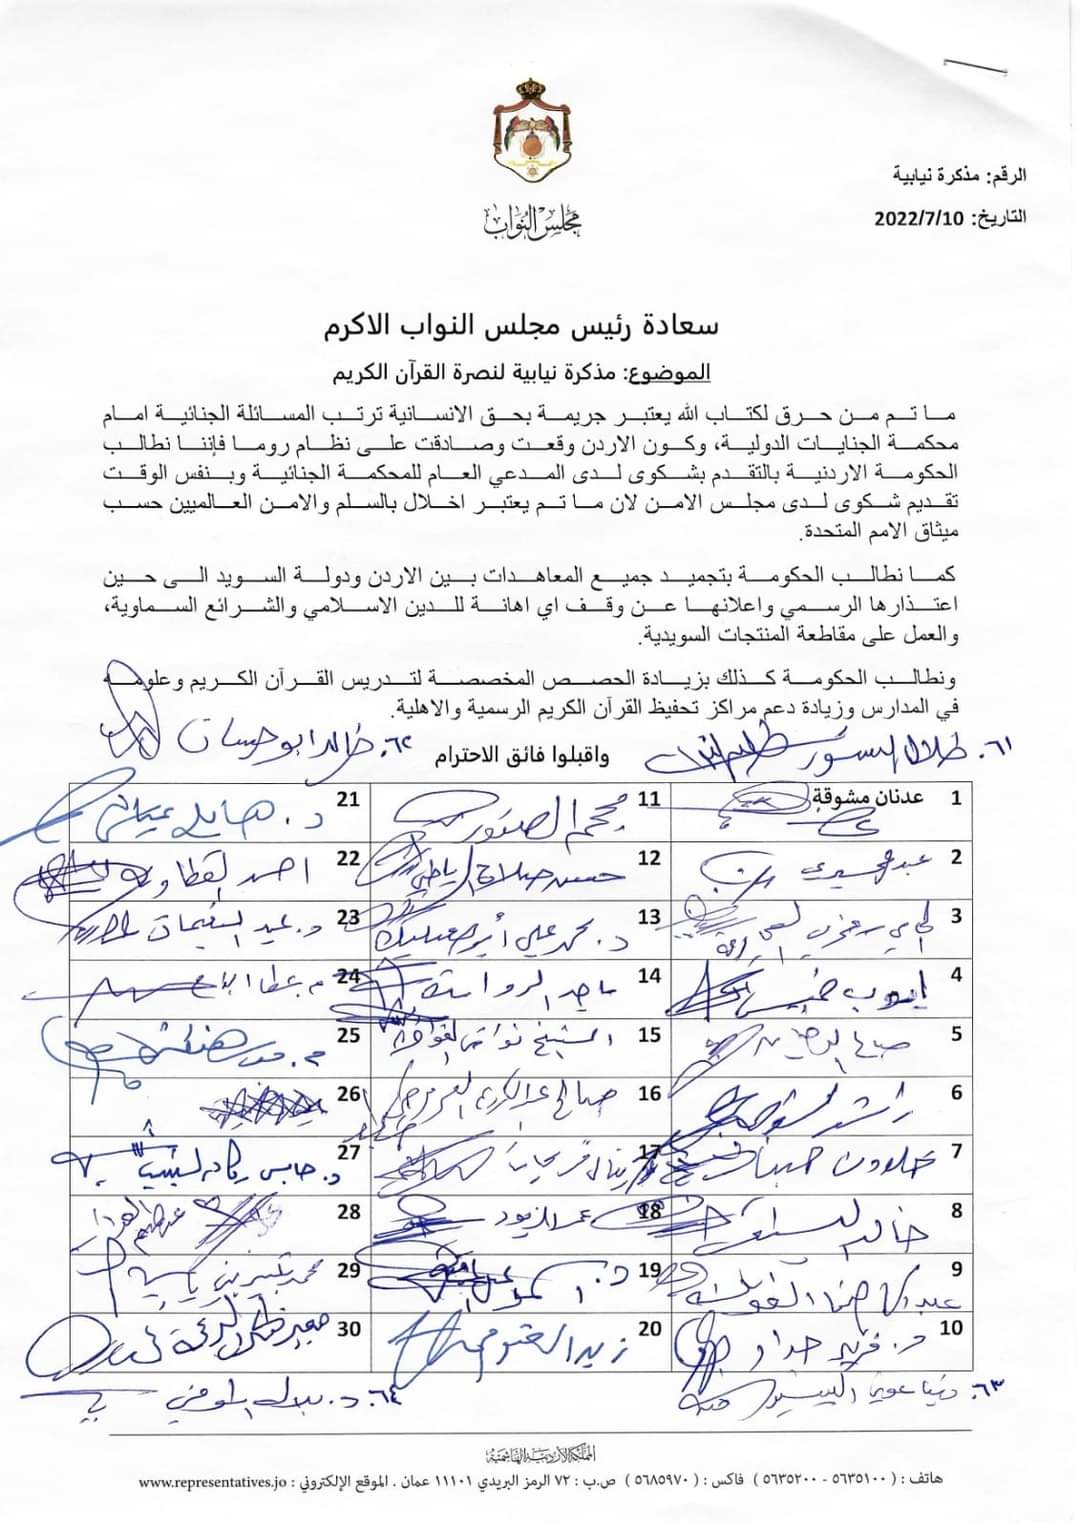 مجلس النواب
الرقم: مذكرة نيابية
التاريخ: 2022/7/10
سعادة رئيس مجلس النواب الاكرم
الموضوع: مذكرة نيابية لنصرة القرآن الكريم
ما تم من حرق لكتاب الله يعتبر جريمة بحق الانسانية ترتب المسائلة الجنائية امام
محكمة الجنايات الدولية، وكون الاردن وقعت وصادقت على نظام روما فإننا نطالب
الحكومة الاردنية بالتقدم بشكوى لدى المدعي العام للمحكمة الجنائية وبنفس الوقت
تقديم شكوى لدى مجلس الامن لان ما تم يعتبر اخلال بالسلم والامن العالميين حسب
ميثاق الامم المتحدة.
كما نطالب الحكومة بتجميد جميع المعاهدات بين الاردن ودولة السويد الى حين
اعتذارها الرسمي واعلانها عن وقف اي اهانة للدين الاسلامي والشرائع السماوية،
والعمل على مقاطعة المنتجات السويدية.
ونطالب الحكومة كذلك بزيادة الحصص المخصصة لتدريس القرآن الكريم وعلومه
في المدارس وزيادة دعم مراكز تحفيظ القرآن الكريم الرسمية والاهلية.
واقبلوا فائق الاحترام
٦١. طلال النسور
٦٢. خالد ابو حسان
1 عدنان مشوقة
11
21 د. هايل عياش
2
12 حسين صلاح الرياحي
22 احمد القطاونة
3
13 د. محمد علي أبو صعيليك
23 د. عيد النعيمات
4 ايوب خميس
14 ماجد الرواشدة
24
5
15 الشيخ نواش القواقزة
25
6 راشد الشوحة
16 صالح عبدالكريم العرموطي
26
7 خلدون حينا
17 رمال قريحات
27
8 خالد البستنجي
18 عمر الزيود
28
9
19
29
10 د. فريد حداد
20 زيد العتوم
30
٦٣.
٦٤. د. بلال المومني
المملكة الأردنية الهاشمية
هاتف : ( ٥٦٣٥١٠٠ - ٥٦٣٥٢٠٠ ) فاكس : ( ٥٦٨٥٩٧٠ ) ص.ب : ٧٢ الرمز البريدي ١١١٠١ عمان . الموقع الإلكتروني : www.representatives.jo